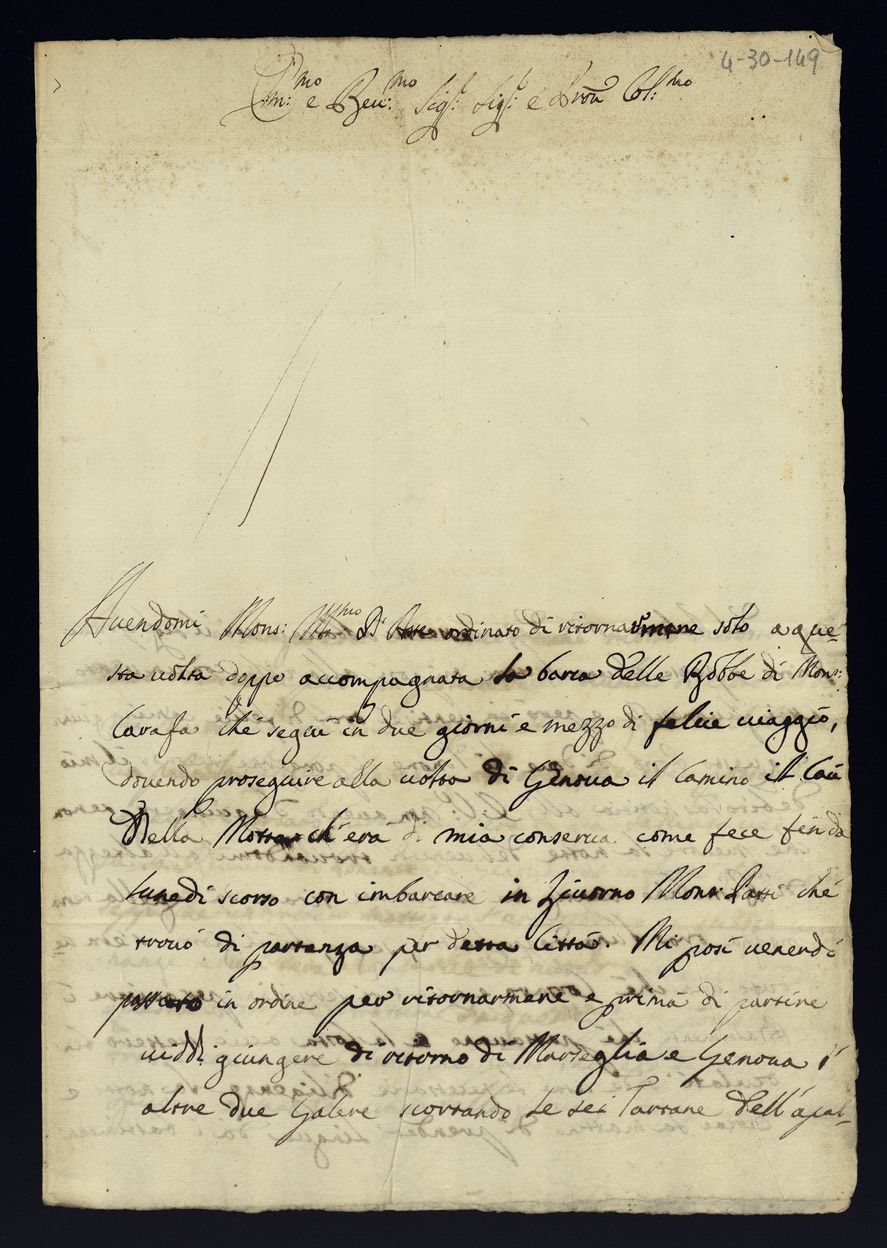 4-30-149
Em:mo e Reu:mo Sig:r Sig:r e Pron Col:mo
Auendomi Mons: Ill:mo ordinato di ritornarmene solo a que-
sta uolta doppo accompagnata la barca delle Robbe di Mons:
Carafa che seguì in due giorni e mezzo di felice uiaggio,
douendo proseguire alla uolta di Genoua il Camino il Cau
Della Motta ch'era di mia conserua come fece fin da
lunedi scorso con imbarcare in Liuorno Mons: Patti che
trouò di partenza per detta Città. Mi posi uenerdi
passato in ordine per ritornarmene e prima di partire
uiddi giungere di ritorno di Marseglia e Genoua l'
altre due Galere scortando le sei Tartane dell'apal-